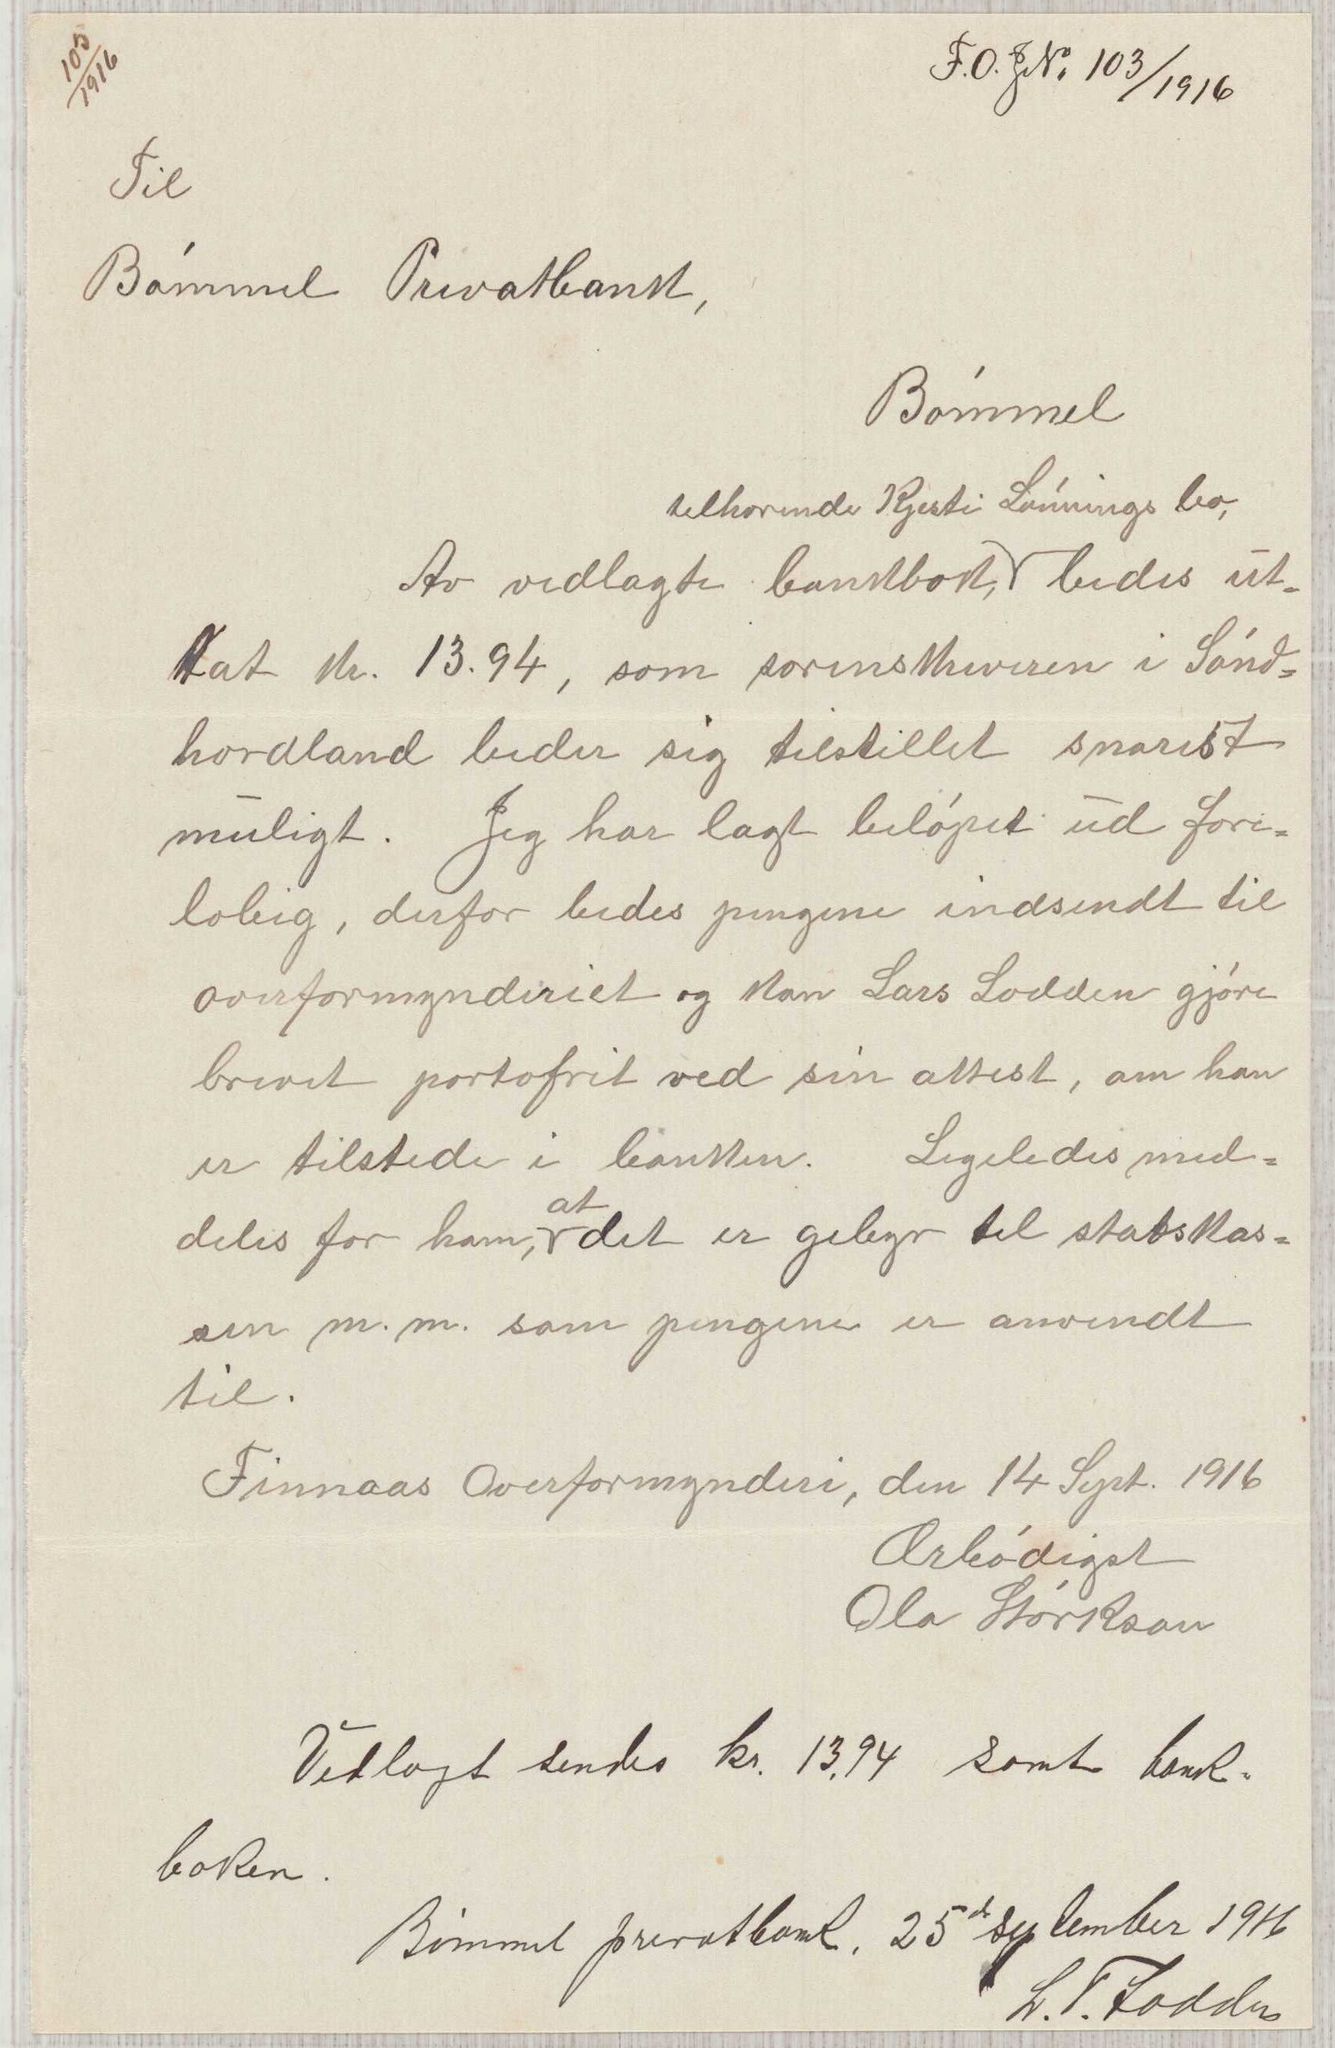 105/1916
F.O. J.No. 103/1916
Til
Bómmel Privatbank,
Bómmel
tilhorende Kjesti Lónnings bo,
Av vedlagte bankbok, bedes ut-
tat kr. 13.94, som sorenskriveren i Sónd-
hordland beder sig tilstillet snarest
muligt. Jeg har lagt belópet ud fore-
lobig, derfor bedes pengene indsendt til
overformynderiet og kan Lars Lodden gjóre
brevet portofrit ved sin attest, om han
er tilstede i banken. Ligeledes med-
deles for ham, at det er gebyr til statskas-
sen m.m. som pengene er anvendt
til.
Finnaas Overformynderi, den 14 Sept. 1916
Ærbódigst
Ola Stórkson
Vedlagt sendes kr. 13,94 samt bank-
boken.
Bómmel privatbank, 25de september 1916
L. T. Lodden